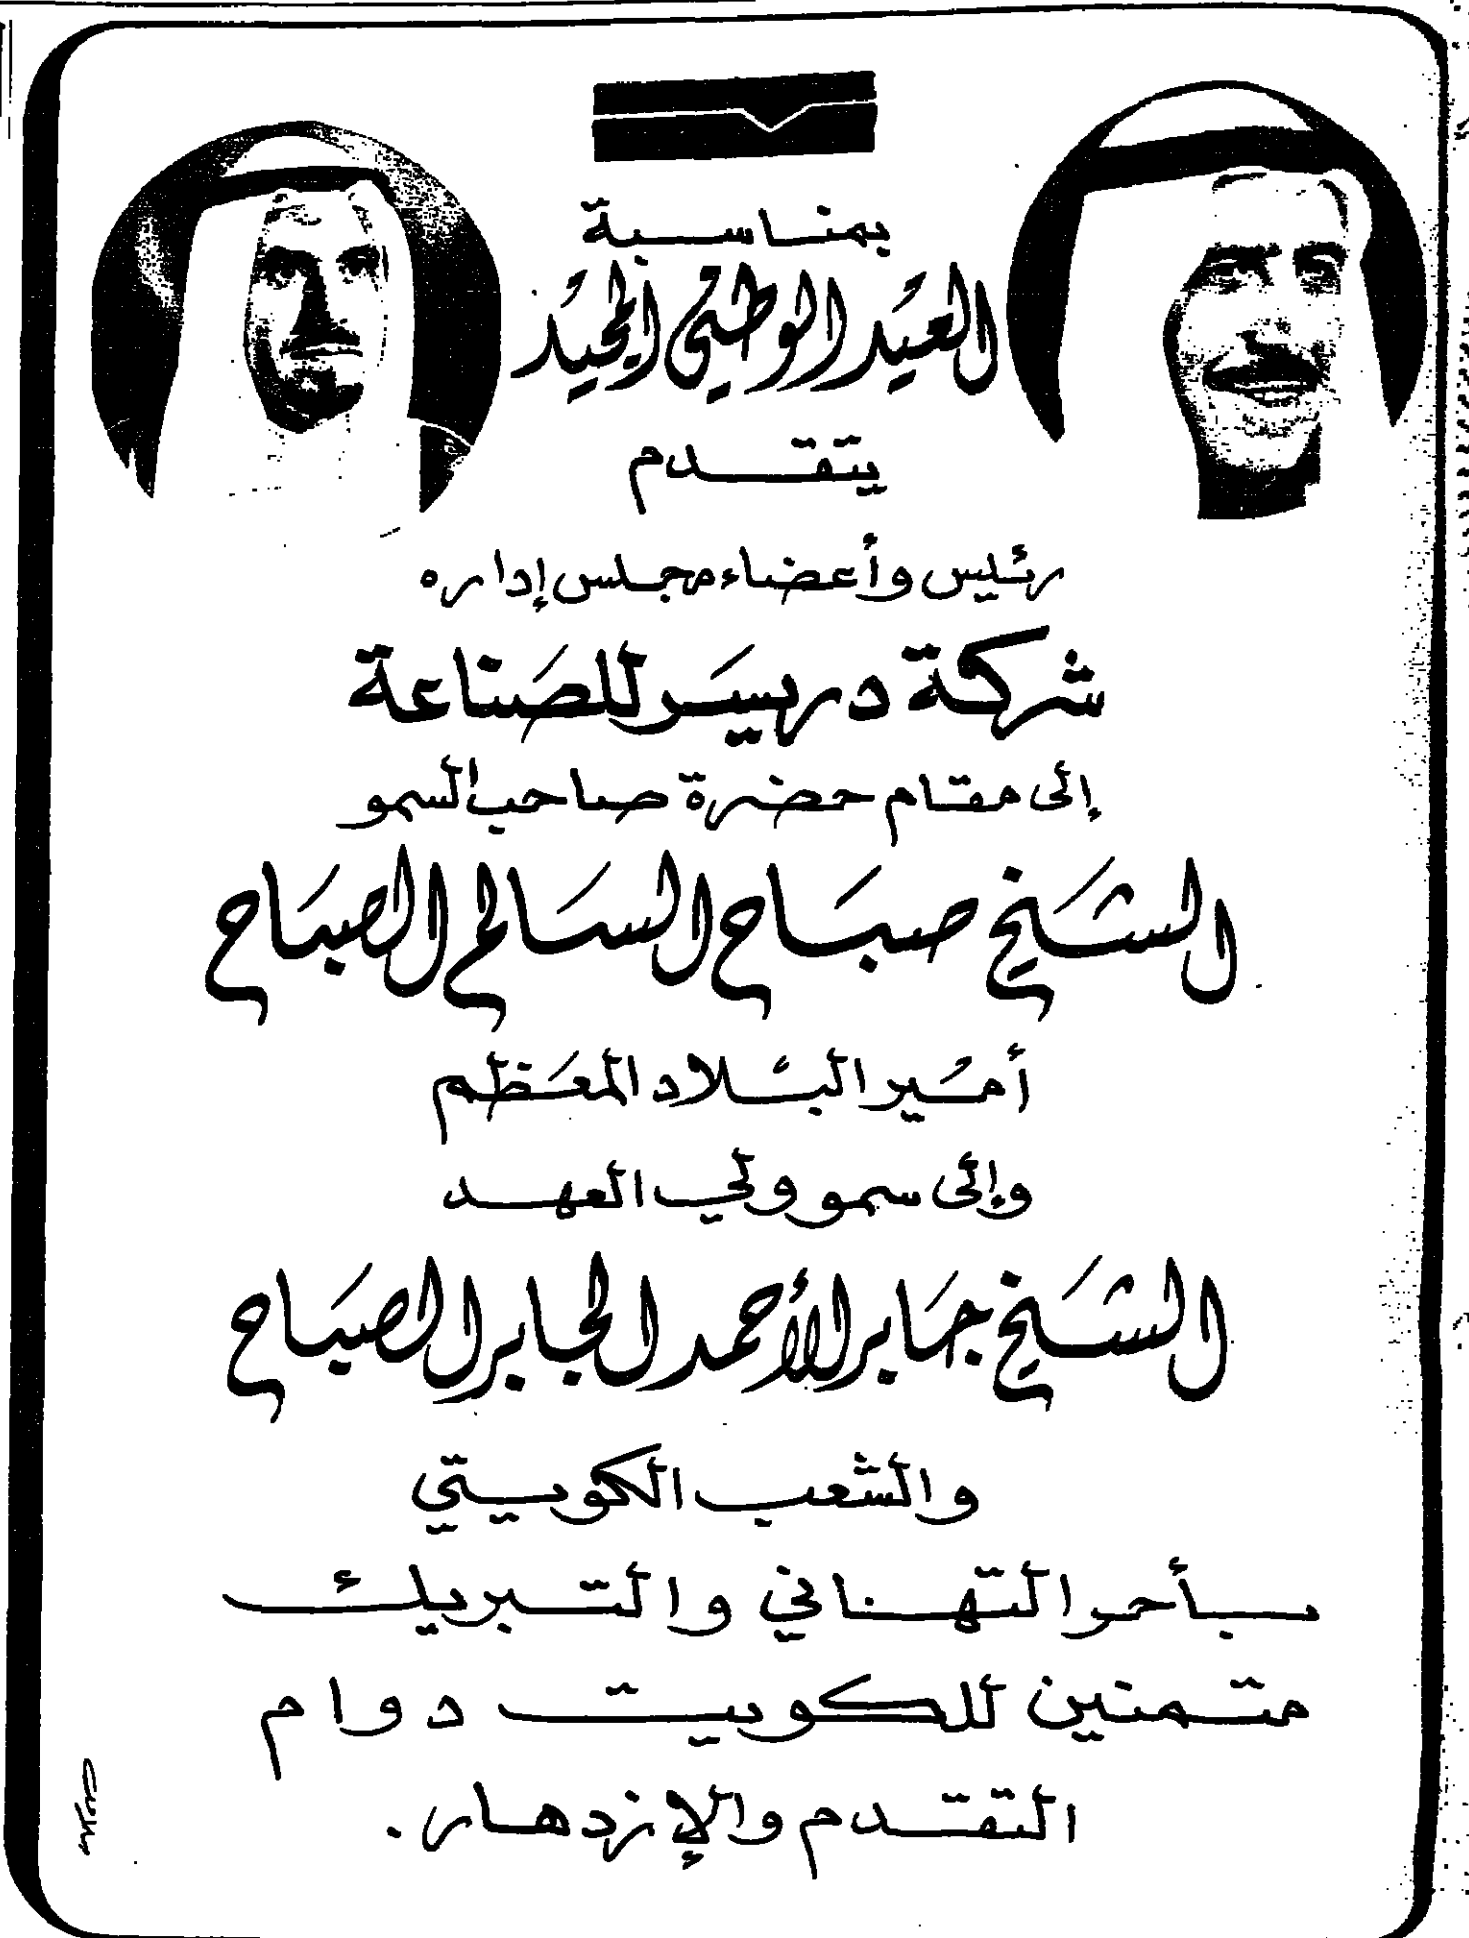 بمناسبة
العيد الوطني المجيد
يتقدم
رئيس وأعضاء مجلس إداره
شركة دريسر للصناعة
إلى مقام حضرة صاحب السمو
الشيخ صباح السالم الصباح
أمير البلاد المعظم
وإلى سمو ولي العهد
الشيخ جابر الأحمد الجابر الصباح
والشعب الكويتي
بأحر التهاني والتبريك
متمنين للكويت دوام
التقدم والإزدهار.